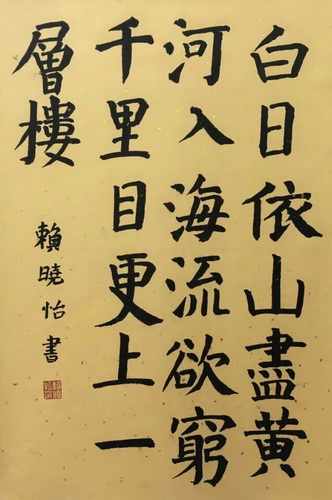 白日依山盡黃
河入海流欲窮
千里目更上一
層樓
賴曉怡書